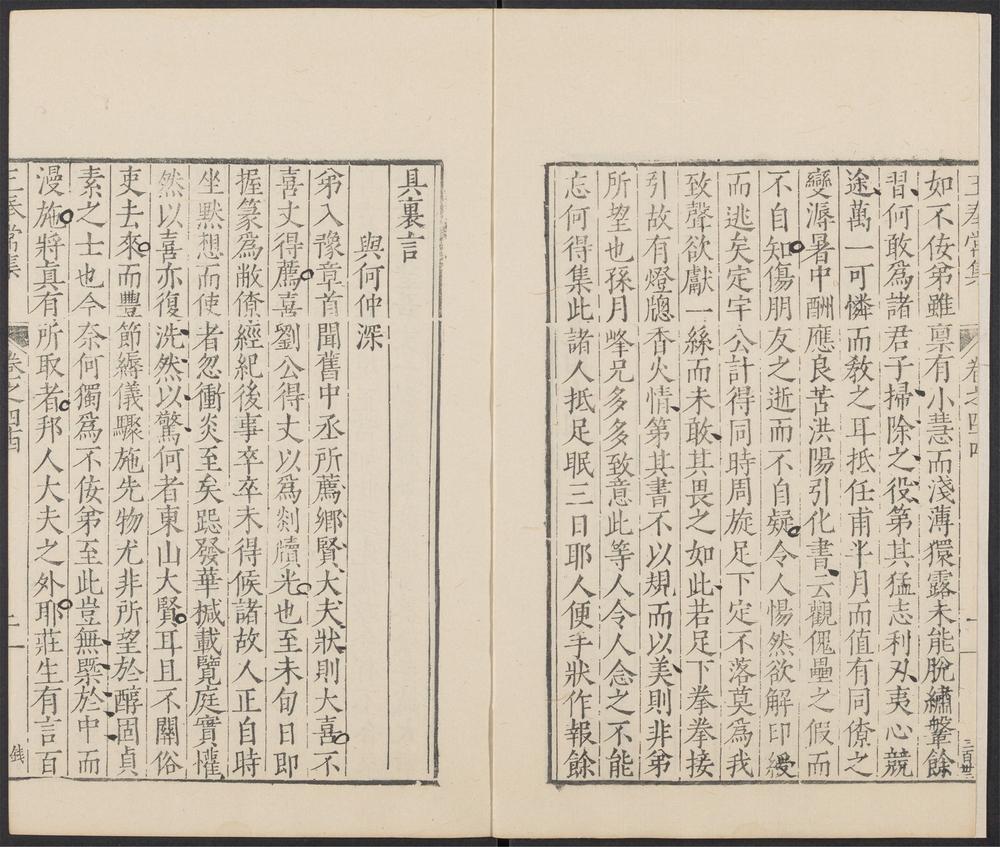 王奉常集 卷之四十四 一 三百卅三
如不佞弟雖稟有小慧而淺薄獧露未能脫繡鞶餘
習何敢爲諸君子掃除之役第其猛志利刄夷心競
途萬一可憐而敎之耳抵任甫半月而值有同僚之
變溽暑中酬應良苦洪陽引化書云觀傀壘之假而
不自知傷朋友之逝而不自疑令人惕然欲解印綬
而逃矣定宇公計得同時周旋足下定不落莫爲我
致聲欲獻一絲而未敢其畏之如此若足下拳拳接
引故有燈牕香火情第其書不以規而以美則非弟
所望也孫月峰兄多多致意此等人令人念之不能
忘何得集此諸人抵足眠三日耶人便手狀作報餘
具裏言
與何仲深
弟入豫章首聞舊中丞所薦鄉賢大夫狀則大喜不
喜丈得薦喜劉公得丈以爲剡牘光也至未旬日即
握篆爲敝僚經紀後事卒卒未得候諸故人正自時
坐默想而使者忽衝炎至矣跽發華椷載覽庭實懽
然以喜亦復洗然以驚何者東山大賢耳且不關俗
吏去來而豐節縟儀驟施先物尤非所望於醇固貞
素之士也今奈何獨爲不佞弟至此豈無槩於中而
漫施將真有所取者邦人大夫之外耶莊生有言百
王奉常集 卷之四十四 二